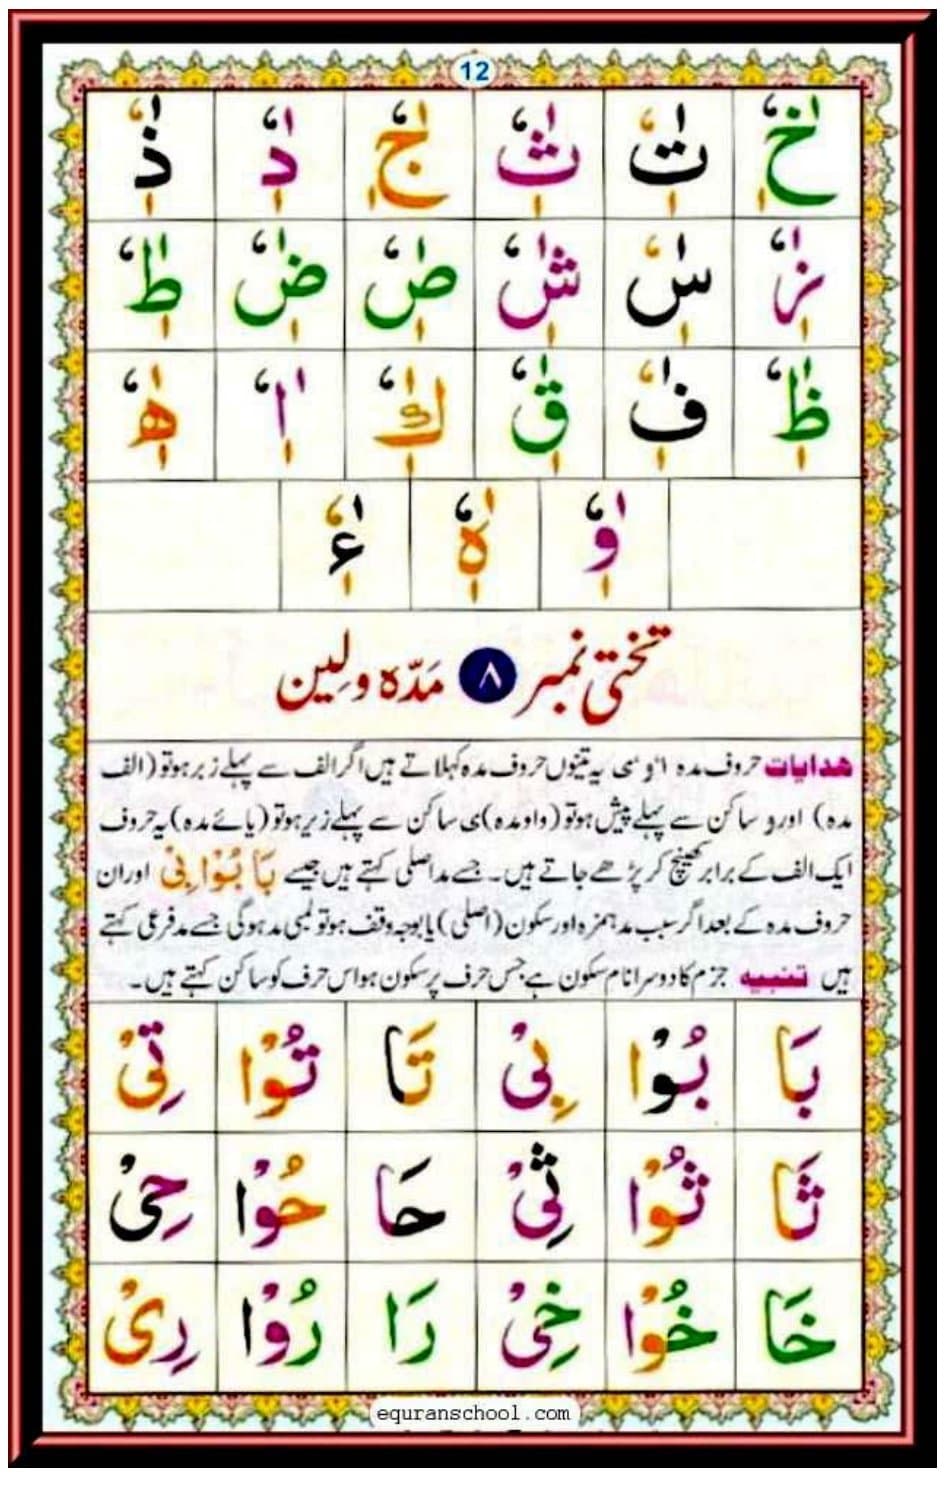 12
خٰ خٖ خٗ تٰ تٖ تٗ ثٰ ثٖ ثٗ جٰ جٖ جٗ دٰ دٖ دٗ ذٰ ذٖ ذٗ
زٰ زٖ زٗ سٰ سٖ سٗ شٰ شٖ شٗ صٰ صٖ صٗ ضٰ ضٖ ضٗ طٰ طٖ طٗ
ظٰ ظٖ ظٗ فٰ فٖ فٗ قٰ قٖ قٗ كٰ كٖ كٗ اٰ اٖ اٗ ھٰ ھٖ ھٗ
وٰ وٖ وٗ هٰ هٖ هٗ ءٰ ءٖ ءٗ
تختی نمبر ۸ مَدّہ و لِین
ھدایات حروف مدہ ا، و، ی یہ تینوں حروف مدہ کہلاتے ہیں اگر الف سے پہلے زبر ہو تو (الف
مدہ) اور و ساکن سے پہلے پیش ہو تو (واو مدہ) ی ساکن سے پہلے زیر ہو تو (یائے مدہ) یہ حروف
ایک الف کے برابر کھینچ کر پڑھے جاتے ہیں۔ جسے مد اصلی کہتے ہیں جیسے بَا بُوْا بِیْ اور ان
حروف مدہ کے بعد اگر سبب مد ہمزہ اور سکون (اصلی) یا بوجہ وقف ہو تو لمبی مد ہوگی جسے مد فرعی کہتے
ہیں تنبیہ جزم کا دوسرا نام سکون ہے جس حرف پر سکون ہو اس حرف کو ساکن کہتے ہیں۔
بَا بُوْا بِیْ تَا تُوْا تِیْ
ثَا ثُوْا ثِیْ حَا حُوْا حِیْ
خَا خُوْا خِیْ رَا رُوْا رِیْ
equranschool.com